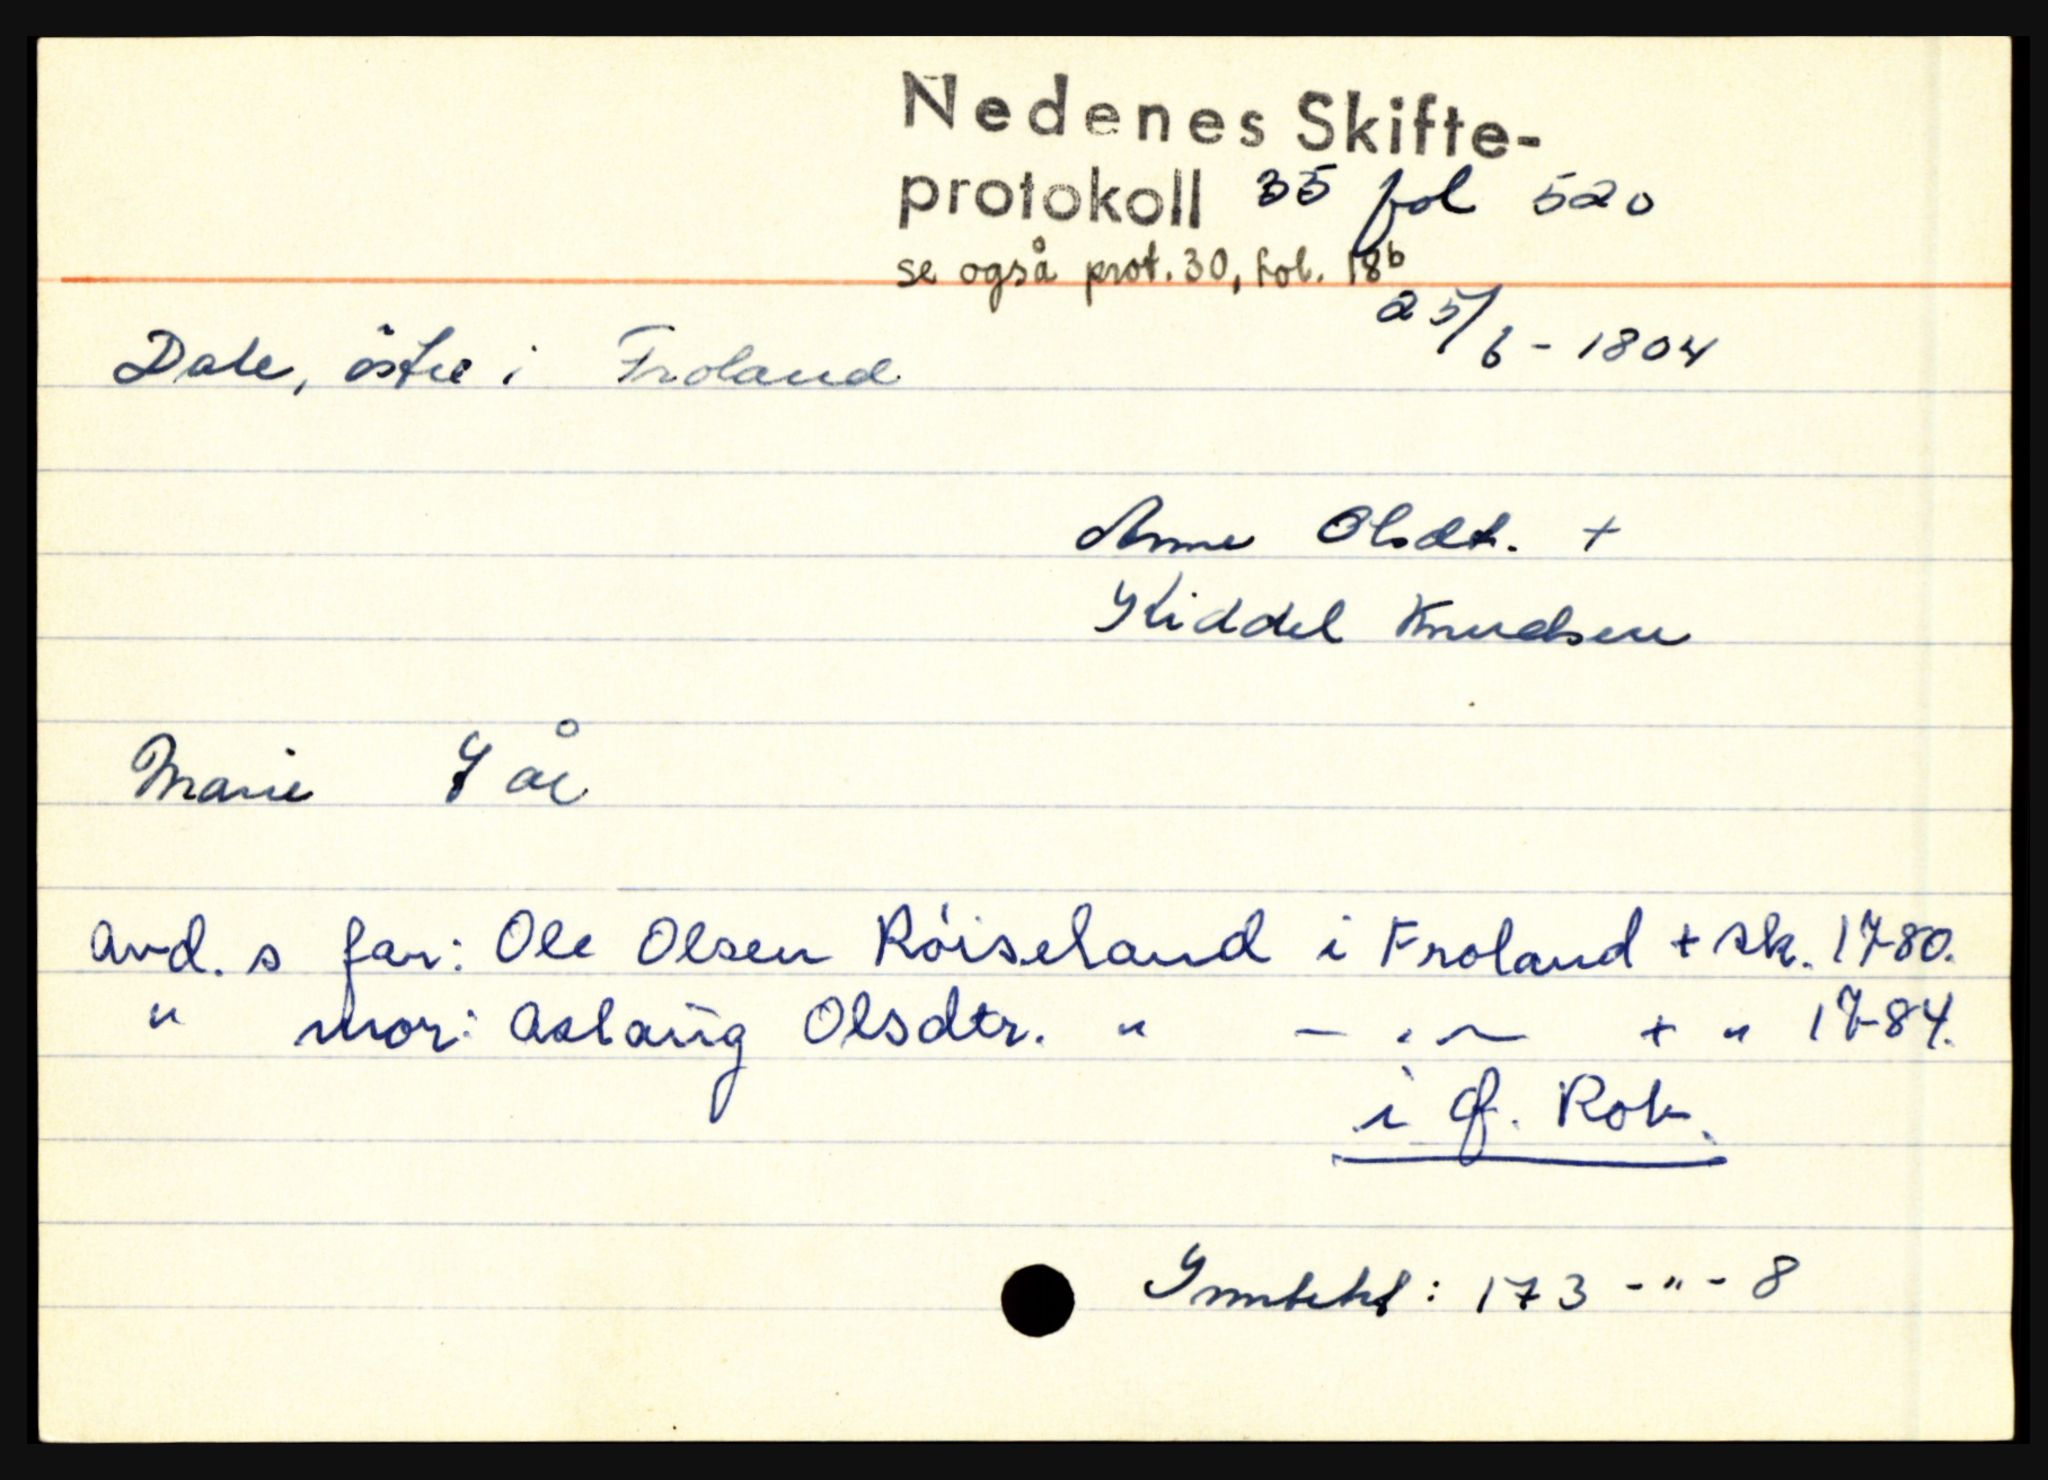 Nedenes Skifte-
protokoll 35 fol 520
se også prot. 30, fol. 18b
25/6 - 1804
Dale, östre i Froland
Anne Olsdt. +
Kiddel Knudsen
Marie 7 år
avd. s far: Ole Olsen Röiseland i Froland + sk. 1780.
" mor: Aslaug Olsdtr. " - " - + " 1784.
i
Inntekt: 173 - " - 8